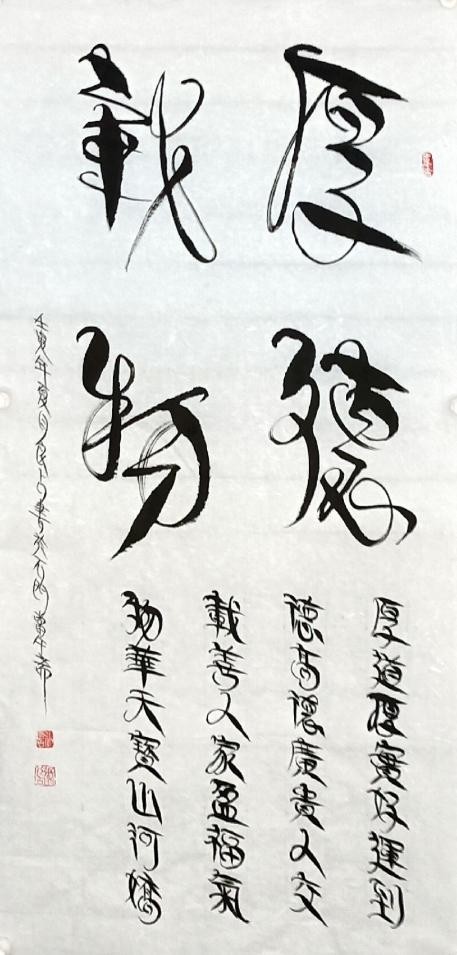 厚德
載物
厚道厚實好運到
德高德廣貴人交
載善人家盈福氣
物華天寶山河嬌
壬寅年夏月